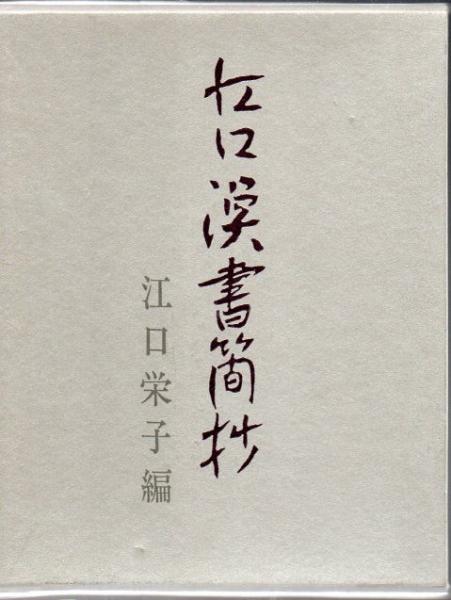 江口渙書簡抄
江口栄子編